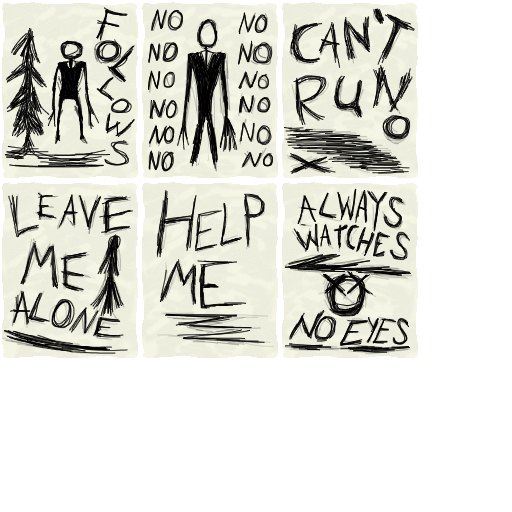 FOLLOWS
NO NO
NO NO
NO NO
NO NO
NO NO
NO NO
CAN'T
RUN
LEAVE
ME
ALONE
HELP
ME
ALWAYS
WATCHES
NO EYES